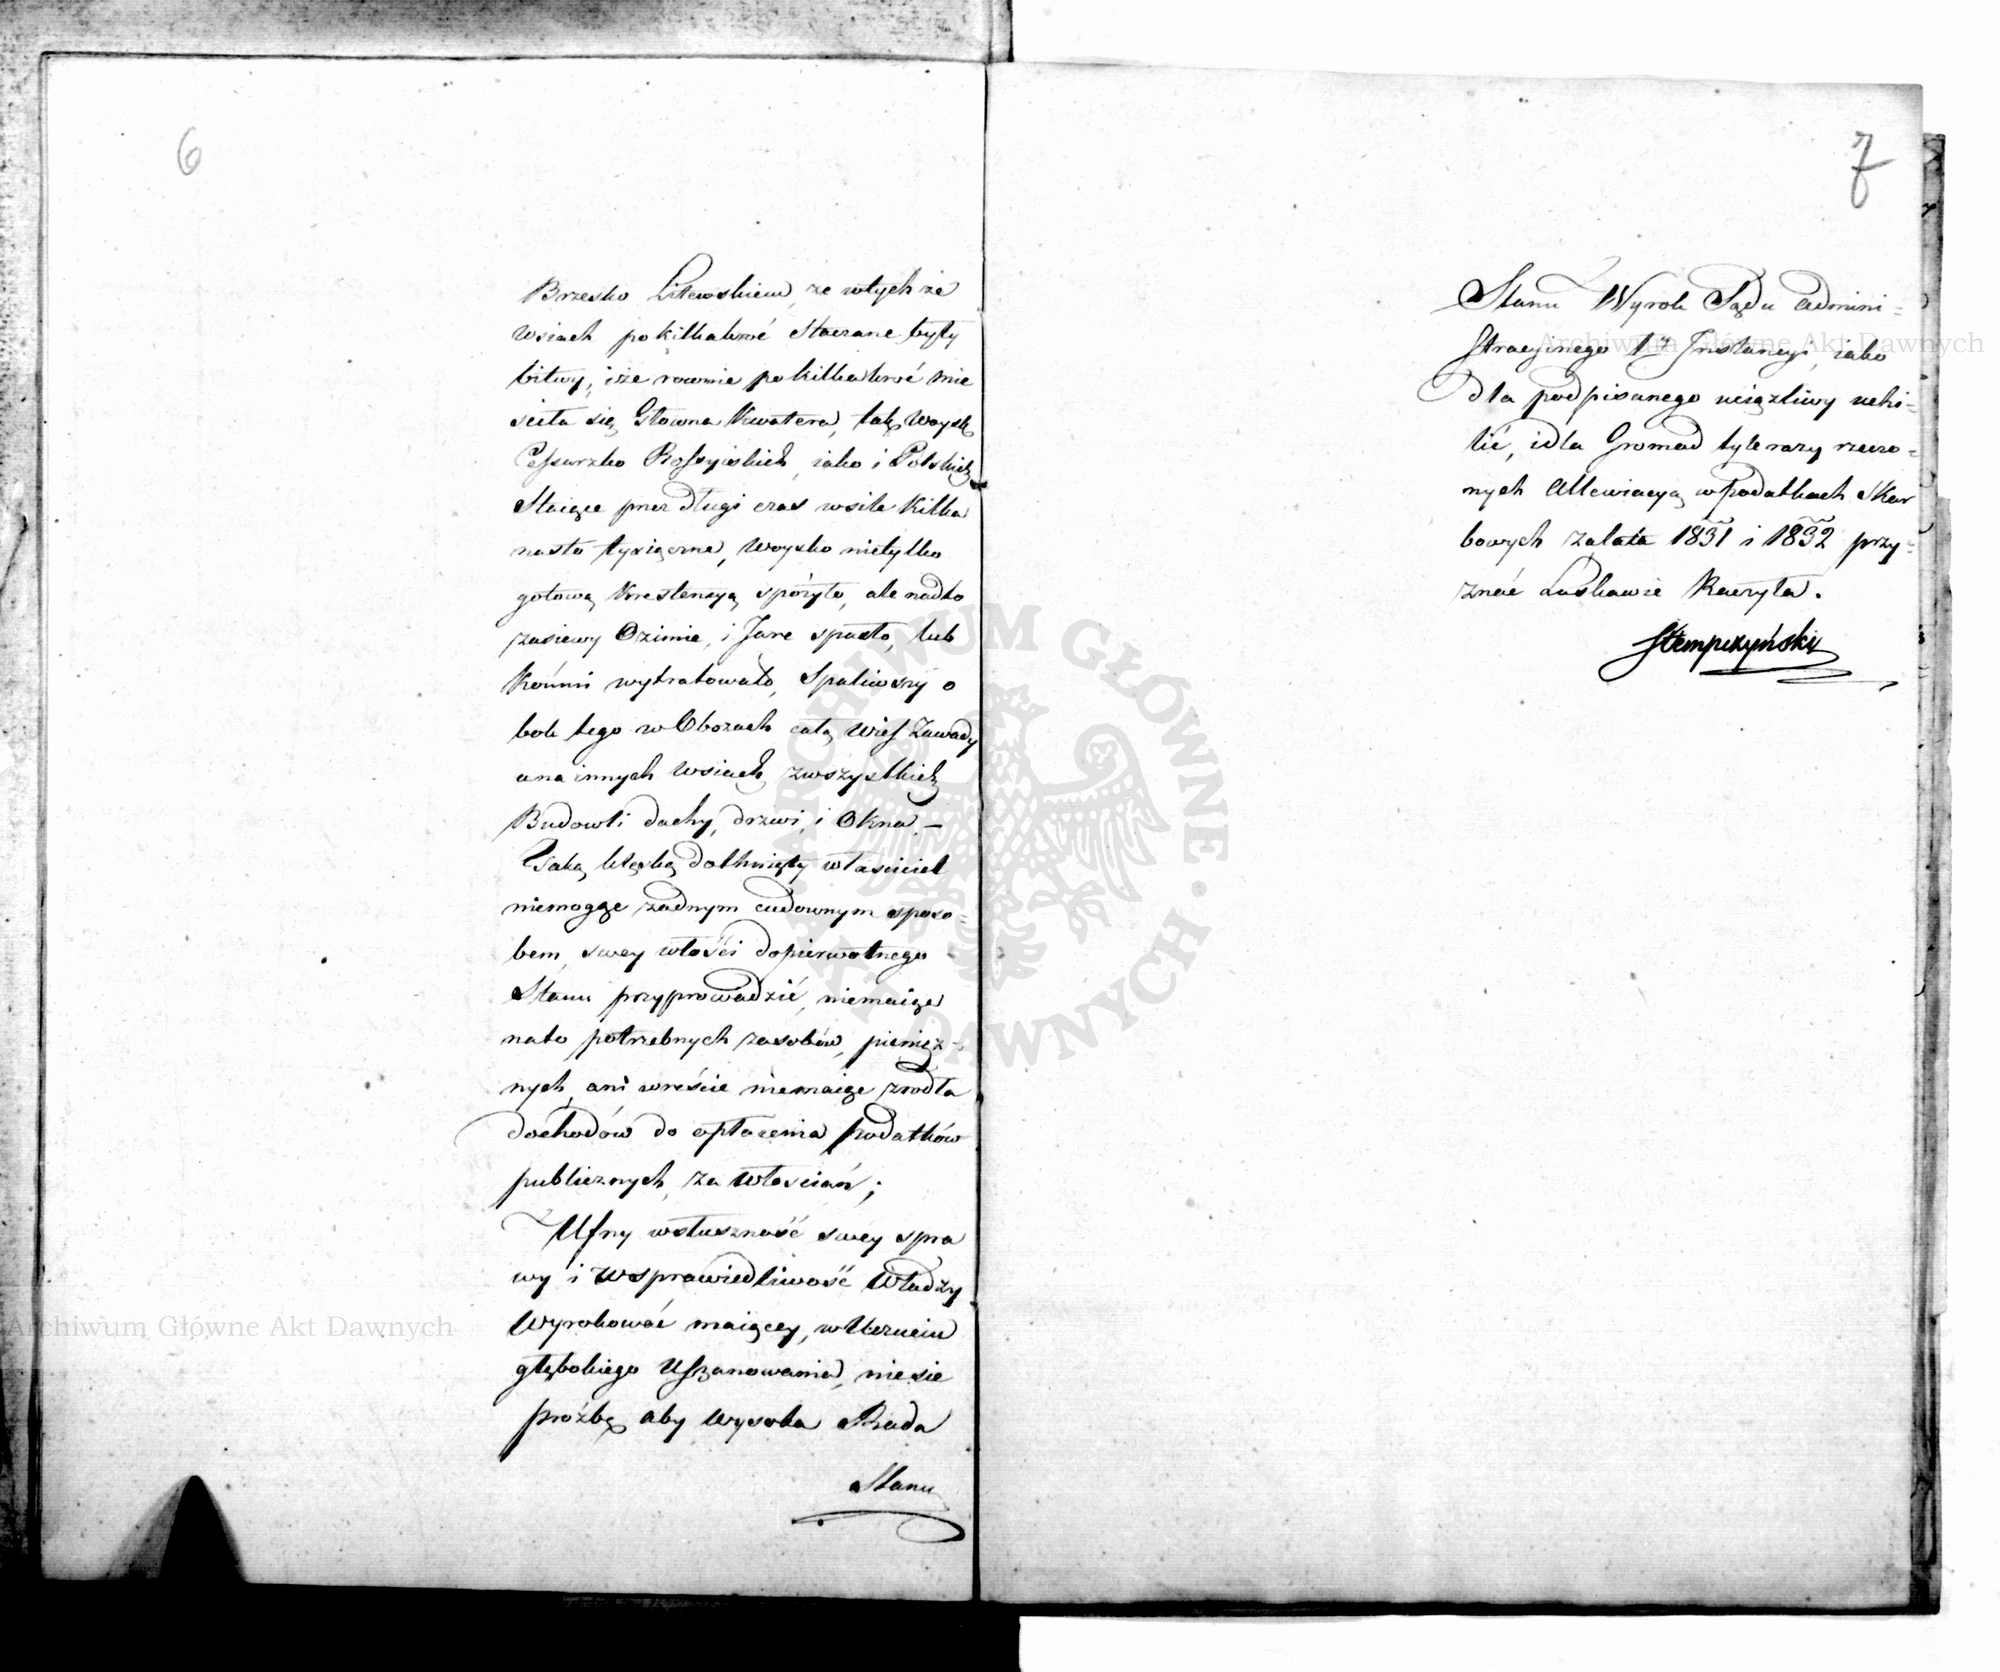 6
Brzesko Litewskiem, ze wtych że
wsiach po kilkakroć Staczane były
bitwy, i że rownie po kilkakroć mie
sciła się Głowna Kwatera, tak Woysk
Cessarzko Rossyiskich, iako i Polskich
Stoiące przez długi czas w sile kilka
nasto tysięczne, Woysko nietylko
gotową krestencyą spożyło, ale nadto
zasiewy Ozimie, i Jare spasło, lub
Końmi wytratowało, Spaliwszy o
bok tego w Obozach całą Wieś Zawady
a na innych wsiach, zwszystkich
Budowli dachy, drzwi, i Okna. —
Taką klęską dotknięty właściciel
niemogąc żadnym cudownym sposo=
bem, swey włości dopierwotnego
Stanu przyprowadzić, niemaiąc
nato potrzebnych zasobów, pienięż-
nych, ani wreście niemaiąc zrodła
dochodów do opłacenia podatków
publicznych, za włościan;
Ufny wsłuszność swey spra
wy i wsprawiedliwość Władzy
Wyrokować maiącey, w Uczuciu
głębokiego Uszanowania, niesie
prożbę aby Wysoka Rada
Stanu
7
Stanu Wyrok Sądu Admini=
stracyinego 1ey Instancyi, iako
dla podpisanego uciążliwy uchi=
lić, i dla Gromad tyle razy rzeczo=
nych Allewiacyą w podatkach Skar
bowych za lata 1831 i 1832 przy=
znać Łaskawie Raczyła.
Stempczyński
Archiwum Główne Akt Dawnych
Archiwum Główne Akt Dawnych
ARCHIWUM GŁÓWNE AKT DAWNYCH